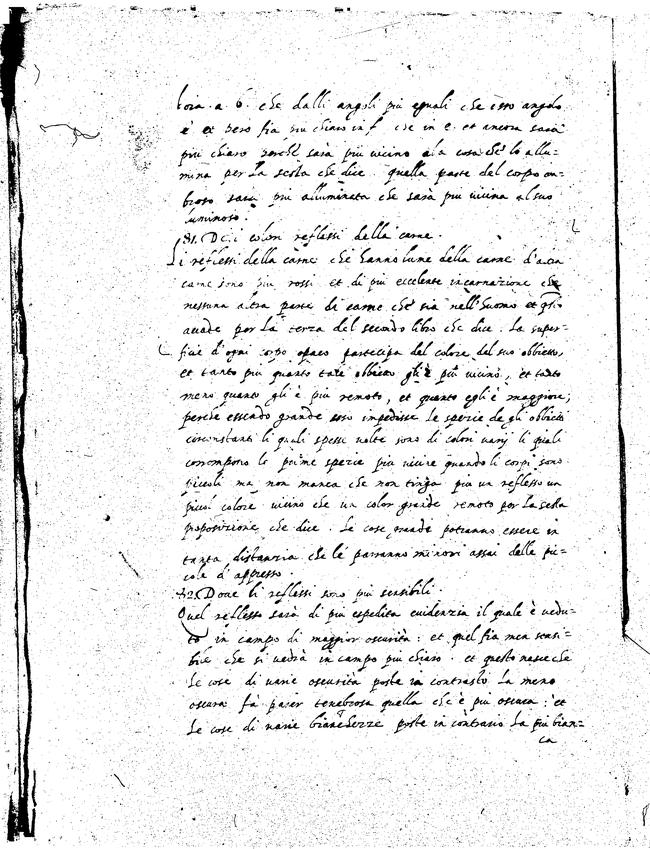 tora. a. b. che dalli angoli più eguali che esso angolo
è et però fia piu chiaro in f che in e. et ancora sarà
più chiaro perche sarà più uicino ala cosa che lo allu=
mina per la sesta che dice. quella parte del corpo om=
broso sara più alluminata che sarà piu uicina al suo
luminoso.
81. De i colori reflessi della carne.
Li reflessi della carne che hanno lume della carne d'altra
carne sono piu rossi et di più eccelente incarnazione che
nessuna altra parte di carne che sia nell'huomo et q̃sto
acade per la terza del secondo libro che dice. la super=
ficie d'ogni corpo opaco partecipa del colore del suo obbietto,
et tanto più quanto tale obbietto gli è più uicino, et tanto
meno quanto gli è più remoto, et quanto egli è maggiore,
perche essendo grande esso impedisse le spezie de gli obbietti
circunstanti li quali spesse uolte sono di colori uarij li quali
corrompono le prime spezie piu uicine quando li corpi sono
piccoli ma non manca che non tinga più un reflesso un
picol colore uicino che un color grande remoto per la sesta
proposizione che dice. le cose grande potranno essere in
tanta distanzia che le parranno minori assai delle pic=
cole d'appresso.
82. Doue li reflessi sono più sensibili.
Quel reflesso sarà di più espedita euidenzia il quale è uedu=
to in campo di maggior oscurità: et quel fia men sensi=
bile che si uedrà in campo piu chiaro. et questo nasce che
le cose di uarie oscurità poste in contrasto la meno
oscura fà parer tenebrosa quella che è più oscura: et
le cose di uarie bianchezze poste in contrasto la più bian=
ca